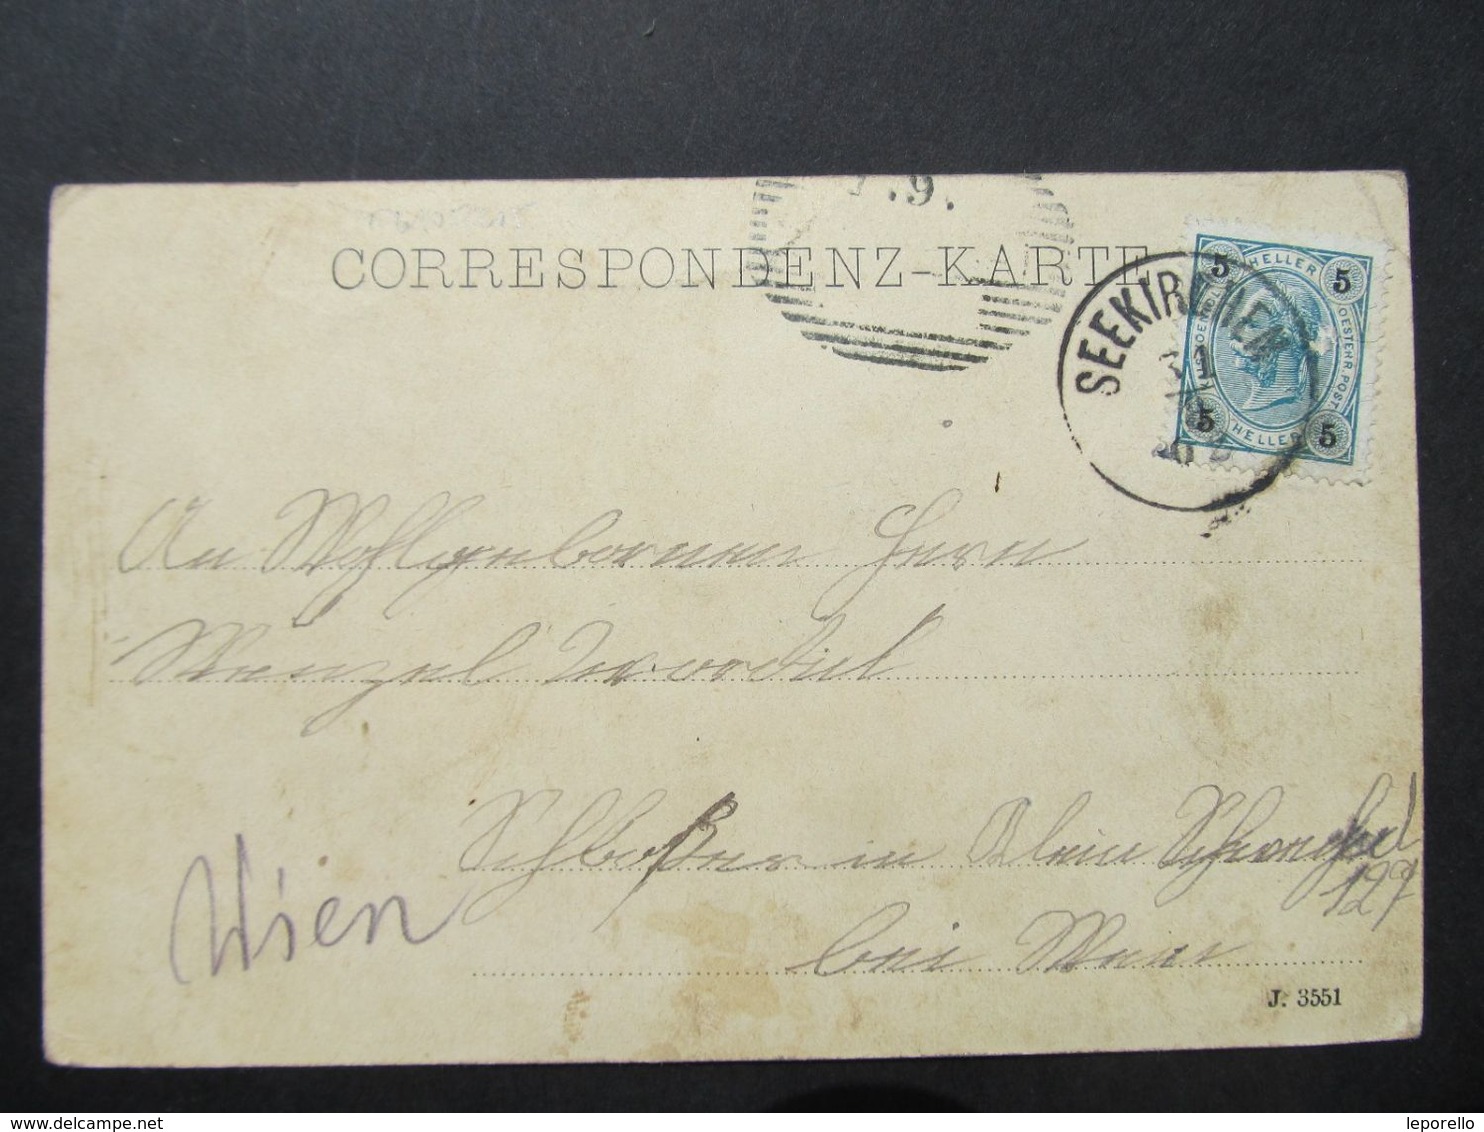 9.
CORRESPONDENZ-KARTE
SEEKIRCHEN
5 HELLER 5
OESTERR. POST
5 HELLER 5
An Wohlgenbornen Herrn
Wenzel
in Klein Schwechat
127
bei Wien
Wien
J. 3551
© www.delcampe.net
leporello